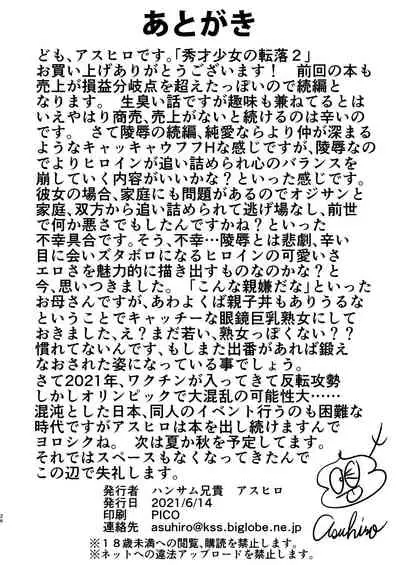 あとがき
ども、アスヒロです。「秀才少女の転落２」
お買い上げありがとうございます！　前回の本も
売上が損益分岐点を超えたっぽいので続編と
なります。　生臭い話ですが趣味も兼ねてるとは
いえやはり商売、売上がないと続けるのは辛いの
です。　さて陵辱の続編、純愛ならより仲が深まる
ようなキャッキャウフフHな感じですが、陵辱なの
でよりヒロインが追い詰められ心のバランスを
崩していく内容がいいかな？といった感じです。
彼女の場合、家庭にも問題があるのでオジサンと
家庭、双方から追い詰められて逃げ場なし、前世
で何か悪さでもしたんですかね？といった
不幸具合です。そう、不幸…陵辱とは悲劇、辛い
目に会いズタボロになるヒロインの可愛いさ
エロさを魅力的に描き出すものなのかな？と
今、思いつきました。　「こんな親嫌だな」といった
お母さんですが、あわよくば親子丼もありうるな
ということでキャッチーな眼鏡巨乳熟女にして
おきました、え？まだ若い、熟女っぽくない？？
慣れてないんです、もしまた出番があれば鍛え
なおされた姿になっている事でしょう。
さて2021年、ワクチンが入ってきて反転攻勢
しかしオリンピックで大混乱の可能性大……
混沌とした日本、同人のイベント行うのも困難な
時代ですがアスヒロは本を出し続けますんで
ヨロシクね。　次は夏か秋を予定してます。
それではスペースもなくなってきたんで
この辺で失礼します。
発行者　ハンサム兄貴　アスヒロ
発行日　2021/6/14
印刷　PICO
連絡先　asuhiro@kss.biglobe.ne.jp
※１８歳未満への閲覧、購読を禁止します。
※ネットへの違法アップロードを禁止します。
asuhiro